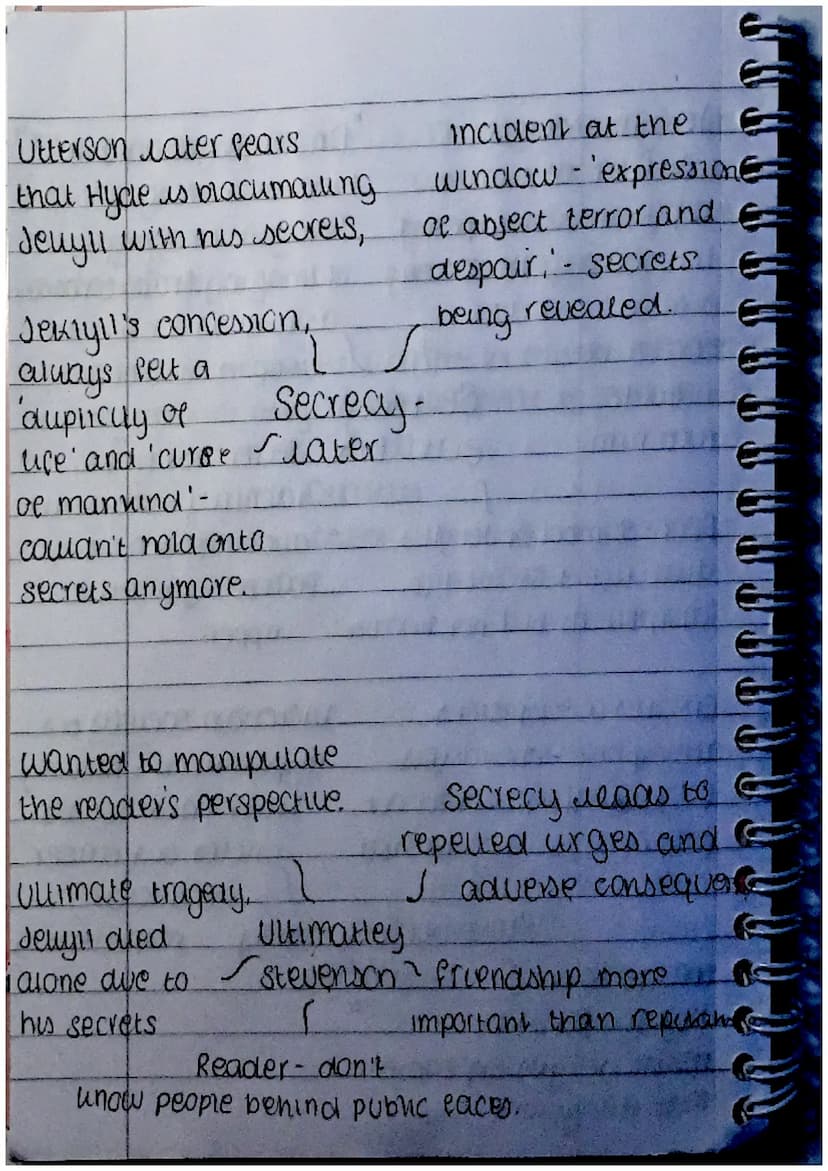 Utterson later fears
that Hyde is blackmailing
Jekyll with his secrets,
incident at the
window - 'expression
of abject terror and
despair,' - secrets
being revealed.
Jekyll's concession,
always felt a
'duplicity of
life' and 'curse
of mankind' -
couldn't hold onto
secrets anymore.
Secrecy -
later
wanted to manipulate
the reader's perspective.
Secrecy leads to
repelled urges and
adverse consequen
Ultimate tragedy,
Jekyll died
alone due to
his secrets
Ultimatley
Stevenson
friendship more
important than reputa
Reader - don't
know people behind public faces.